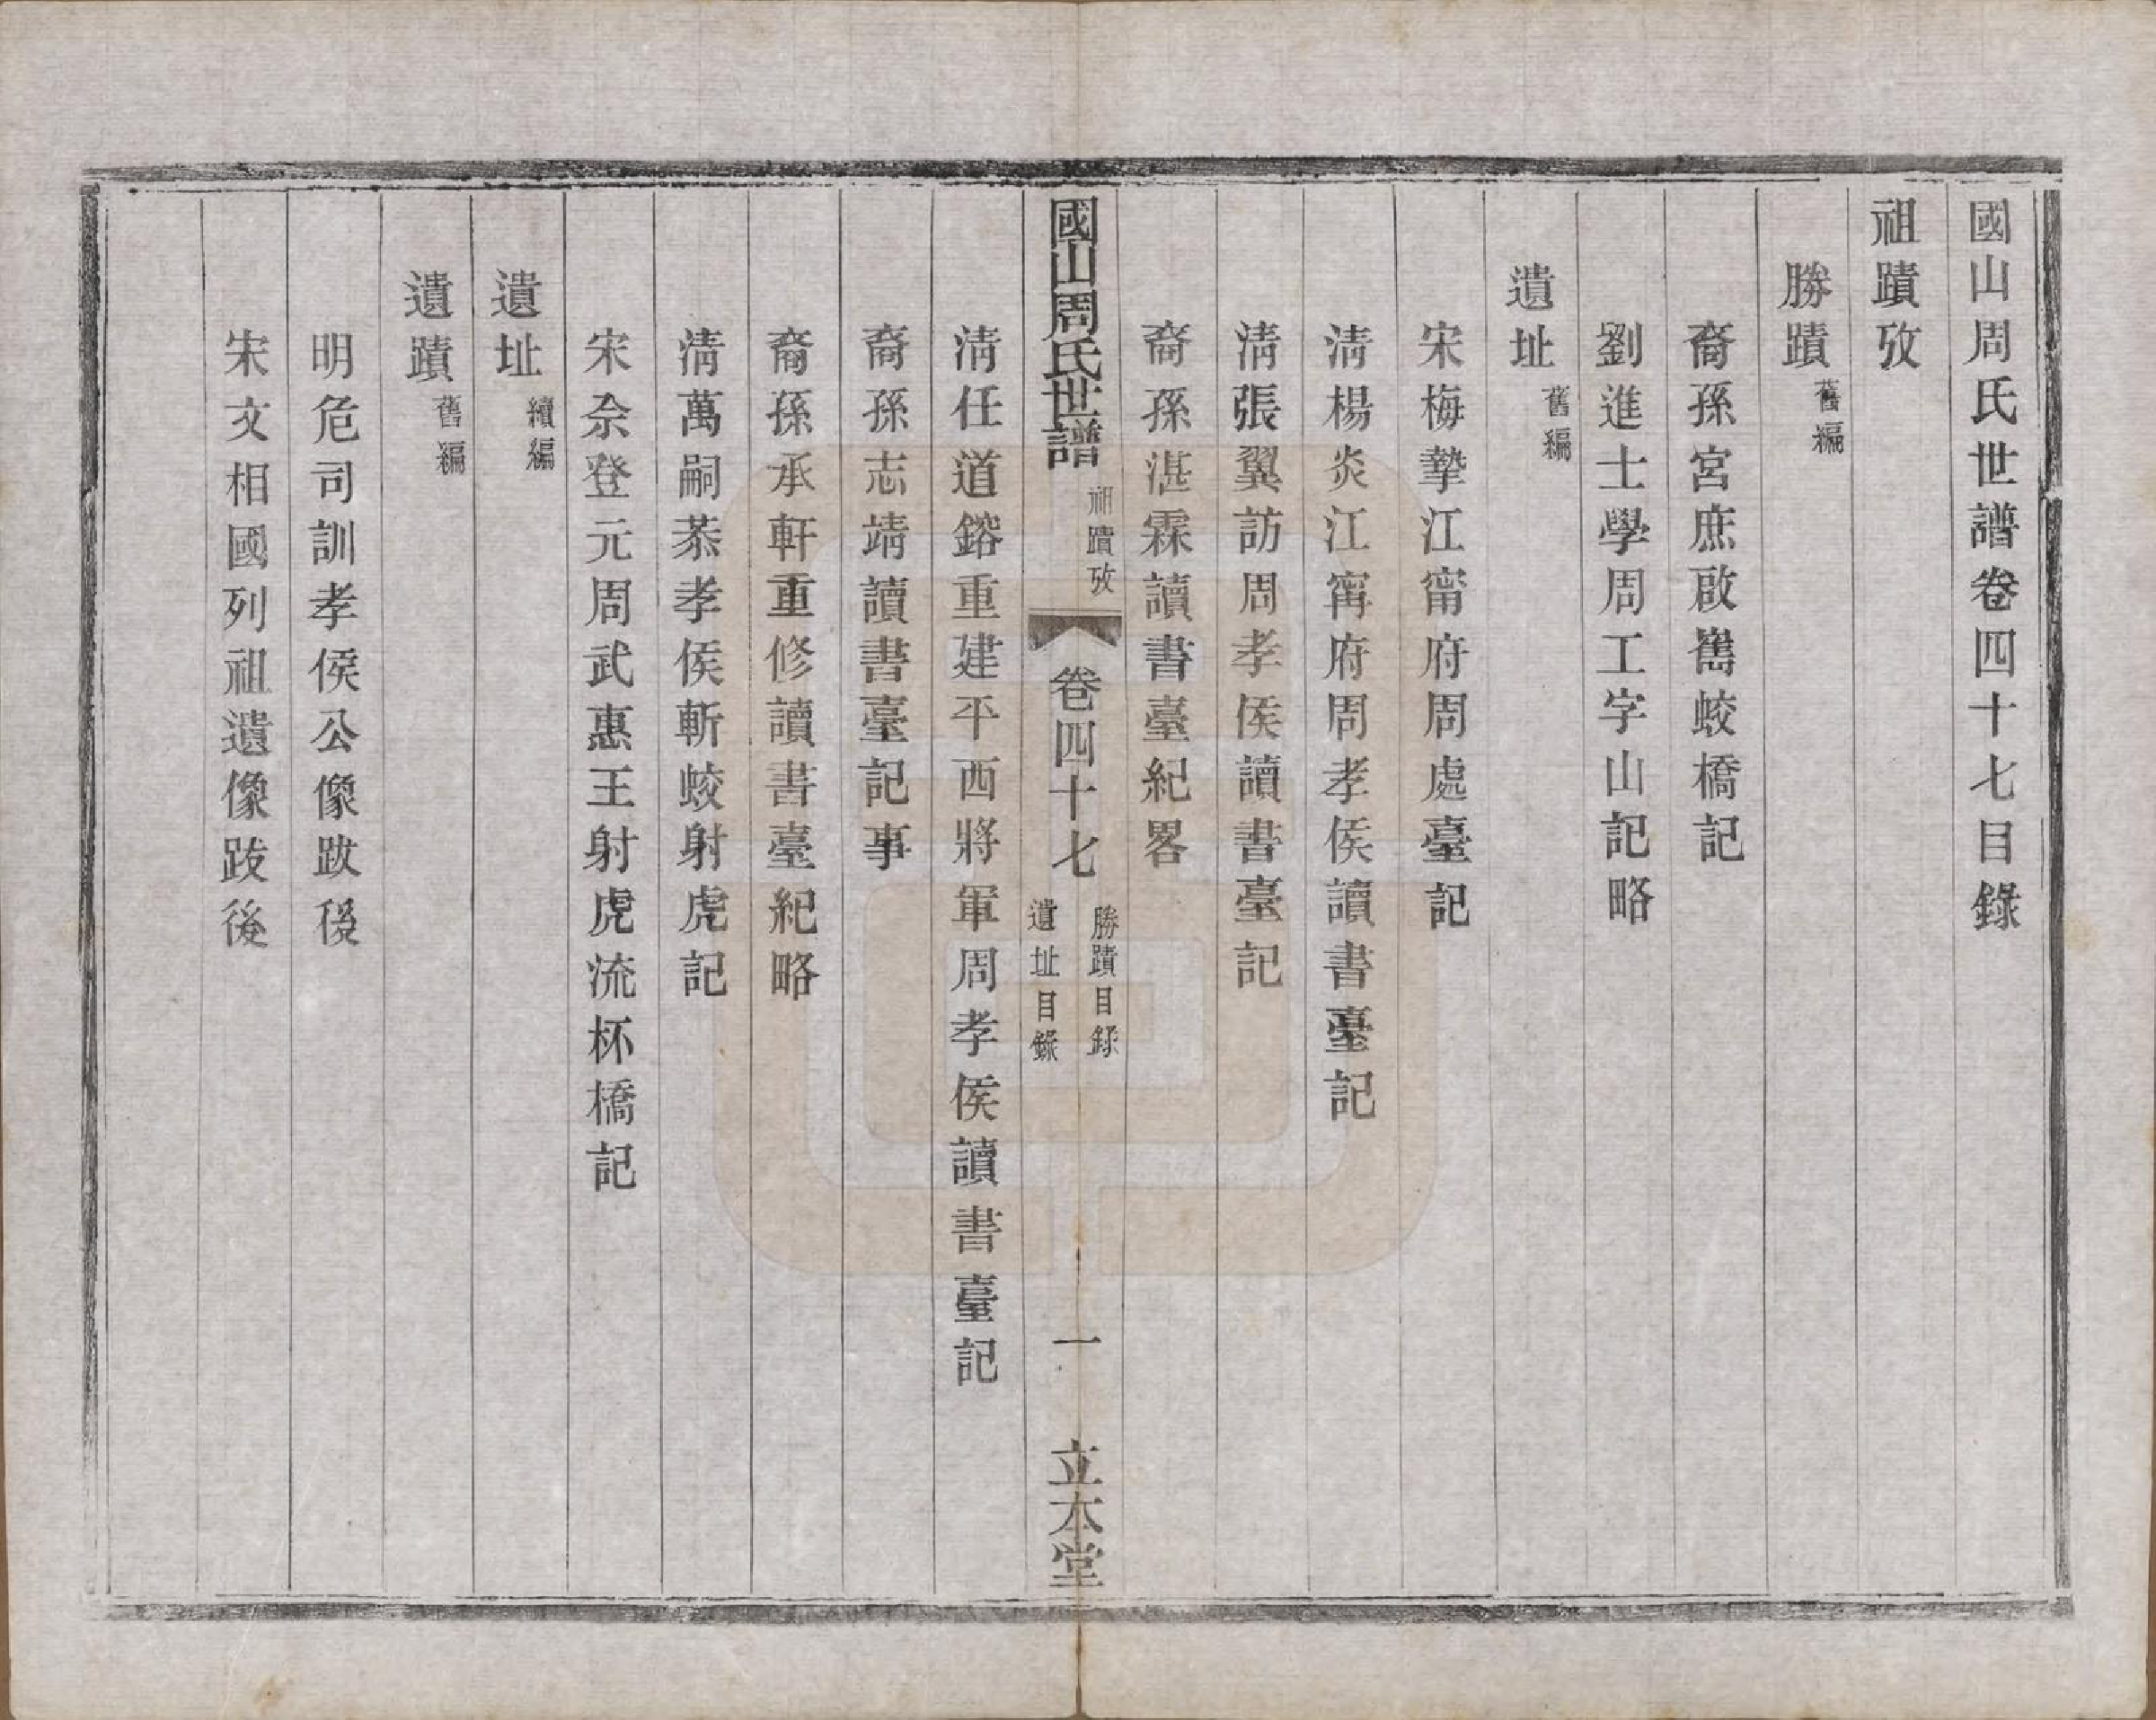 國山周氏世譜卷四十七目錄
祖蹟攷
勝蹟舊編
裔孫宮庶啟雟蛟橋記
劉進士學周工字山記略
遺址舊編
宋梅摯江甯府周處臺記
淸楊炎江甯府周孝侯讀書臺記
淸張翼訪周孝侯讀書臺記
裔孫湛霖讀書臺紀畧
國山周氏世譜 祖蹟攷 卷四十七 勝蹟目錄 遺址目錄 一 立本堂
淸任道鎔重建平西將軍周孝侯讀書臺記
裔孫志靖讀書臺記事
裔孫承軒重修讀書臺紀略
淸萬嗣恭孝侯斬蛟射虎記
宋佘登元周武惠王射虎流杯橋記
遺址續編
遺蹟舊編
明危司訓孝侯公像跋後
宋文相國列祖遺像跋後